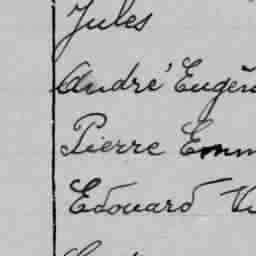 Jules
André Eugèn
Pierre Emm
Edouard